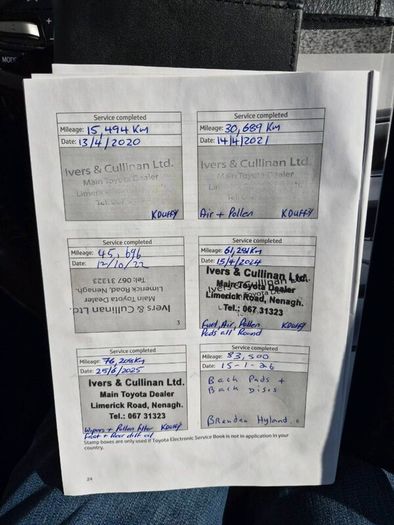 MODE
Service completed
Mileage: 15,494 Km
Date: 13/4/2020
Ivers & Cullinan Ltd.
Main Toyota Dealer
KDuffy
Service completed
Mileage: 30,689 Km
Date: 14/4/2021
Ivers & Cullinan Ltd.
Main Toyota Dealer
Air + Pollen KDuffy
Service completed
Mileage: 45,696
Date: 12/10/22
Ivers & Cullinan Ltd.
Main Toyota Dealer
Limerick Road, Nenagh
Tel: 067 31323
Service completed
Mileage: 61,291Km
Date: 15/4/2024
Ivers & Cullinan Ltd.
Main Toyota Dealer
Limerick Road, Nenagh.
Tel.: 067 31323
Fuel, Air, Pollen KDuffy
Pads all Round
Service completed
Mileage: 76,208Km
Date: 25/6/2025
Ivers & Cullinan Ltd.
Main Toyota Dealer
Limerick Road, Nenagh.
Tel.: 067 31323
Wipers + Pollen filter KDuffy
Front + Rear diff oil
Service completed
Mileage: 83,500
Date: 15-1-26
Back Pads +
Back Discs
Brendan Hyland
Stamp boxes are only used if Toyota Electronic Service Book is not in application in your
country.
24